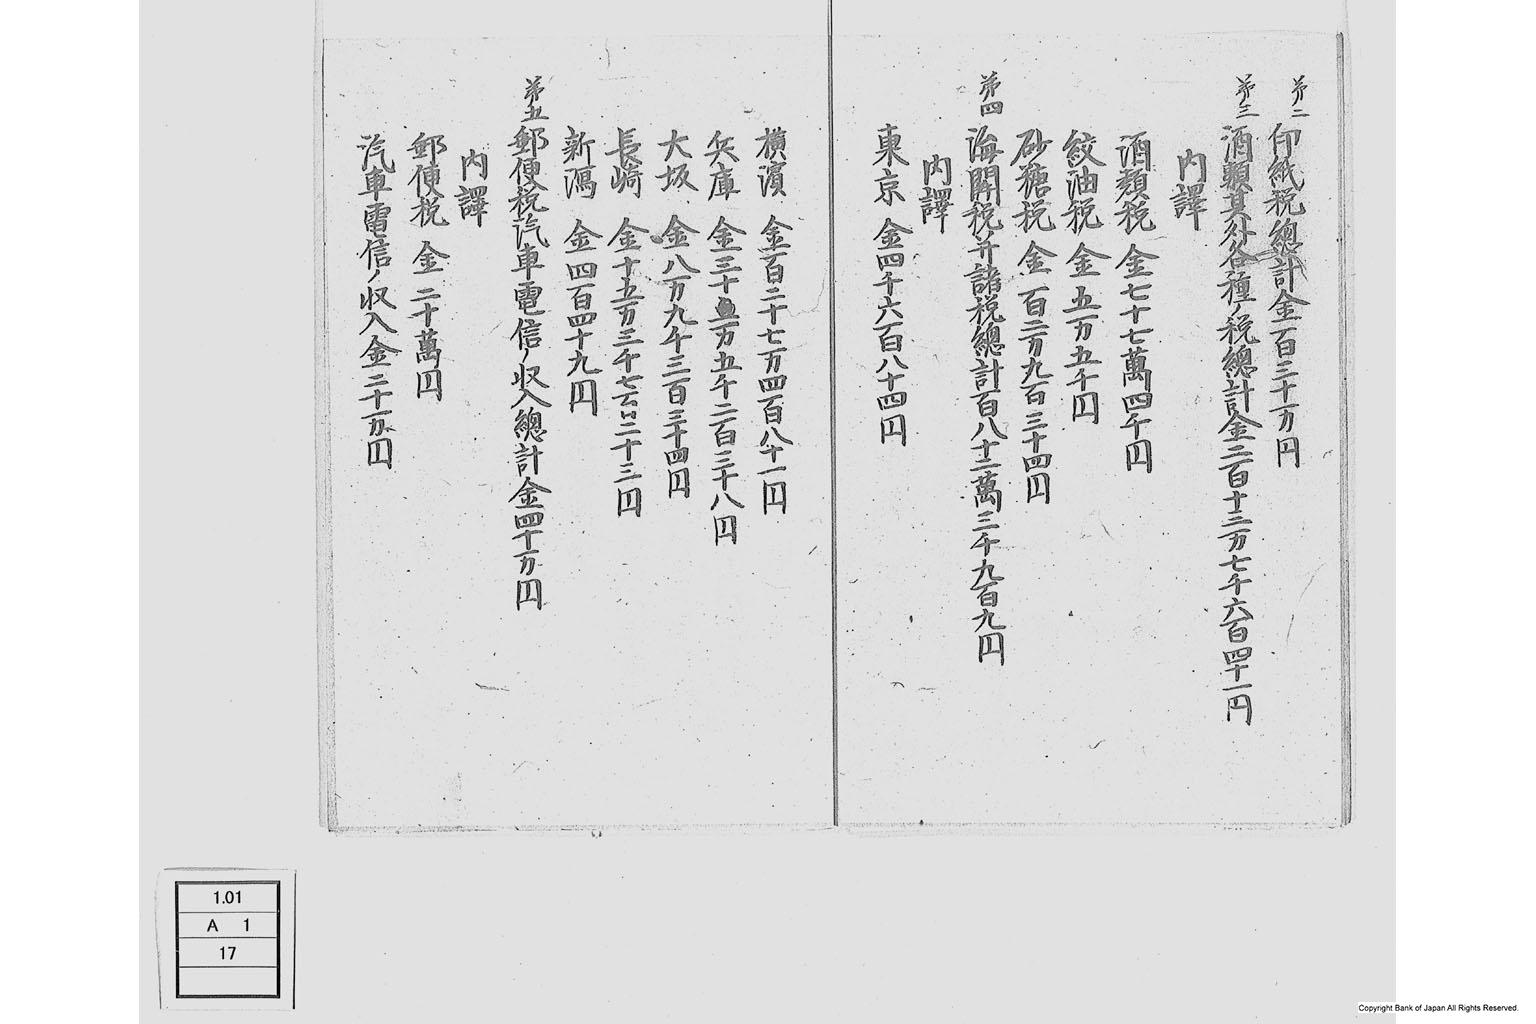 第二 印紙税總計金百三十一万円
第三 酒類其外各種ノ税總計金二百十三万七千六百四十一円
内譯
酒類税 金七十七萬四千円
絞油税 金五万五千円
砂糖税 金百二万九百三十四円
第四 海関税并諸税總計百八十二萬三千九百九円
内譯
東京 金四千六百八十四円
横濱 金百二十七万四百八十一円
兵庫 金三十一万五千二百三十八円
大坂 金八万九千三百三十四円
長崎 金十五万三千七百二十三円
新潟 金四百四十九円
第五 郵便税汽車電信ノ収入總計金四十一万円
内譯
郵便税 金二十萬円
汽車電信ノ収入金二十一万円
1.01
A 1
17
Copyright Bank of Japan All Rights Reserved.